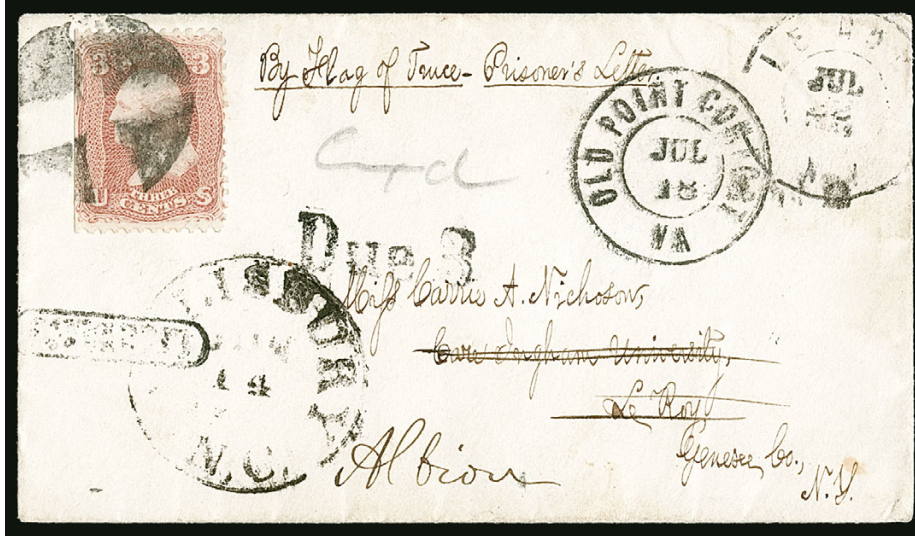 3 3
U THREE CENTS S
By Flag of Truce - Prisoner's Letter
OLD POINT COMFORT
JUL
18
VA
LE ROY
JUL
Due 3
Miss Carrie A. Nichoson,
Care Ingham University,
Le Roy
Genesee Co.,
N.Y.
Albion
14
N.C.